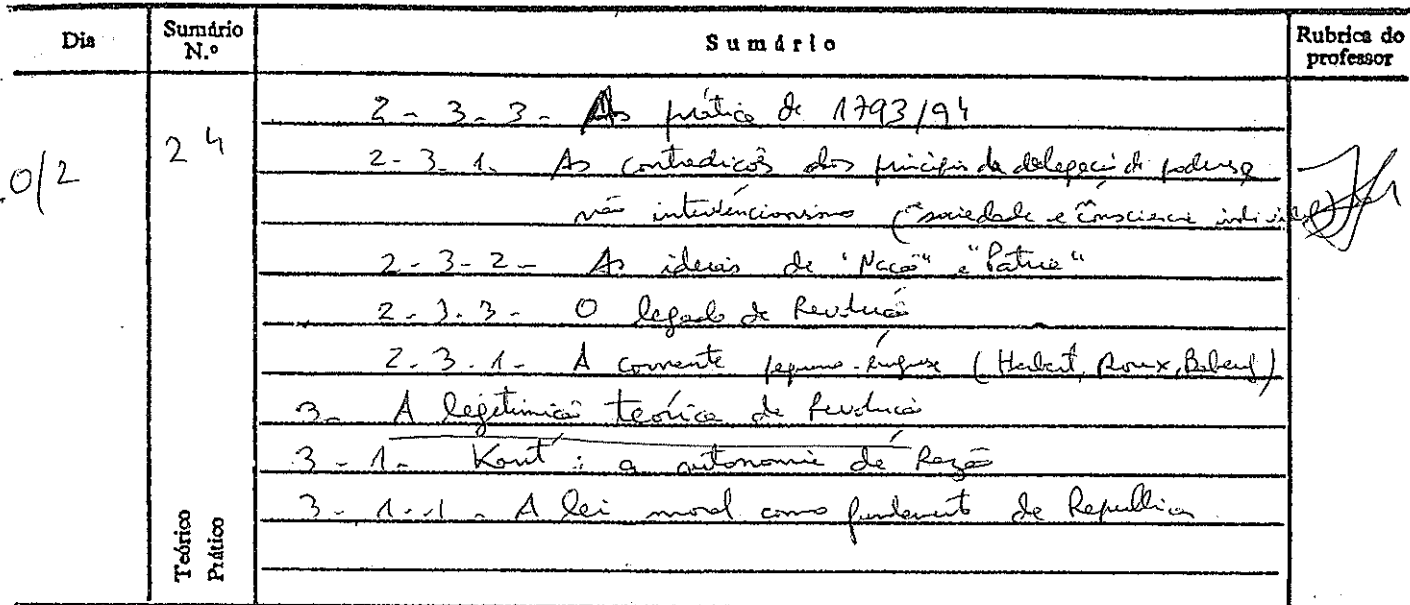 Dia
Sumário N.º
Sumário
Rubrica do professor
0/2
24
2-3-3- As prática de 1793/94
2-3-1. As contradições dos princípios da delegação de poderes e
não intervencionismo ("sociedade e consciência individual)
2-3-2- As ideias de "Nação" e "Patria"
2-3-3- O legado da Revolução
2.3.1- A corrente pequeno-burguesa (Hebert, Roux, Babeuf)
3- A legitimação teórica da Revolução
3-1- Kant: a autonomia da Razão
3-1-1- A lei moral como fundamento da Republica
Teórico
Prático